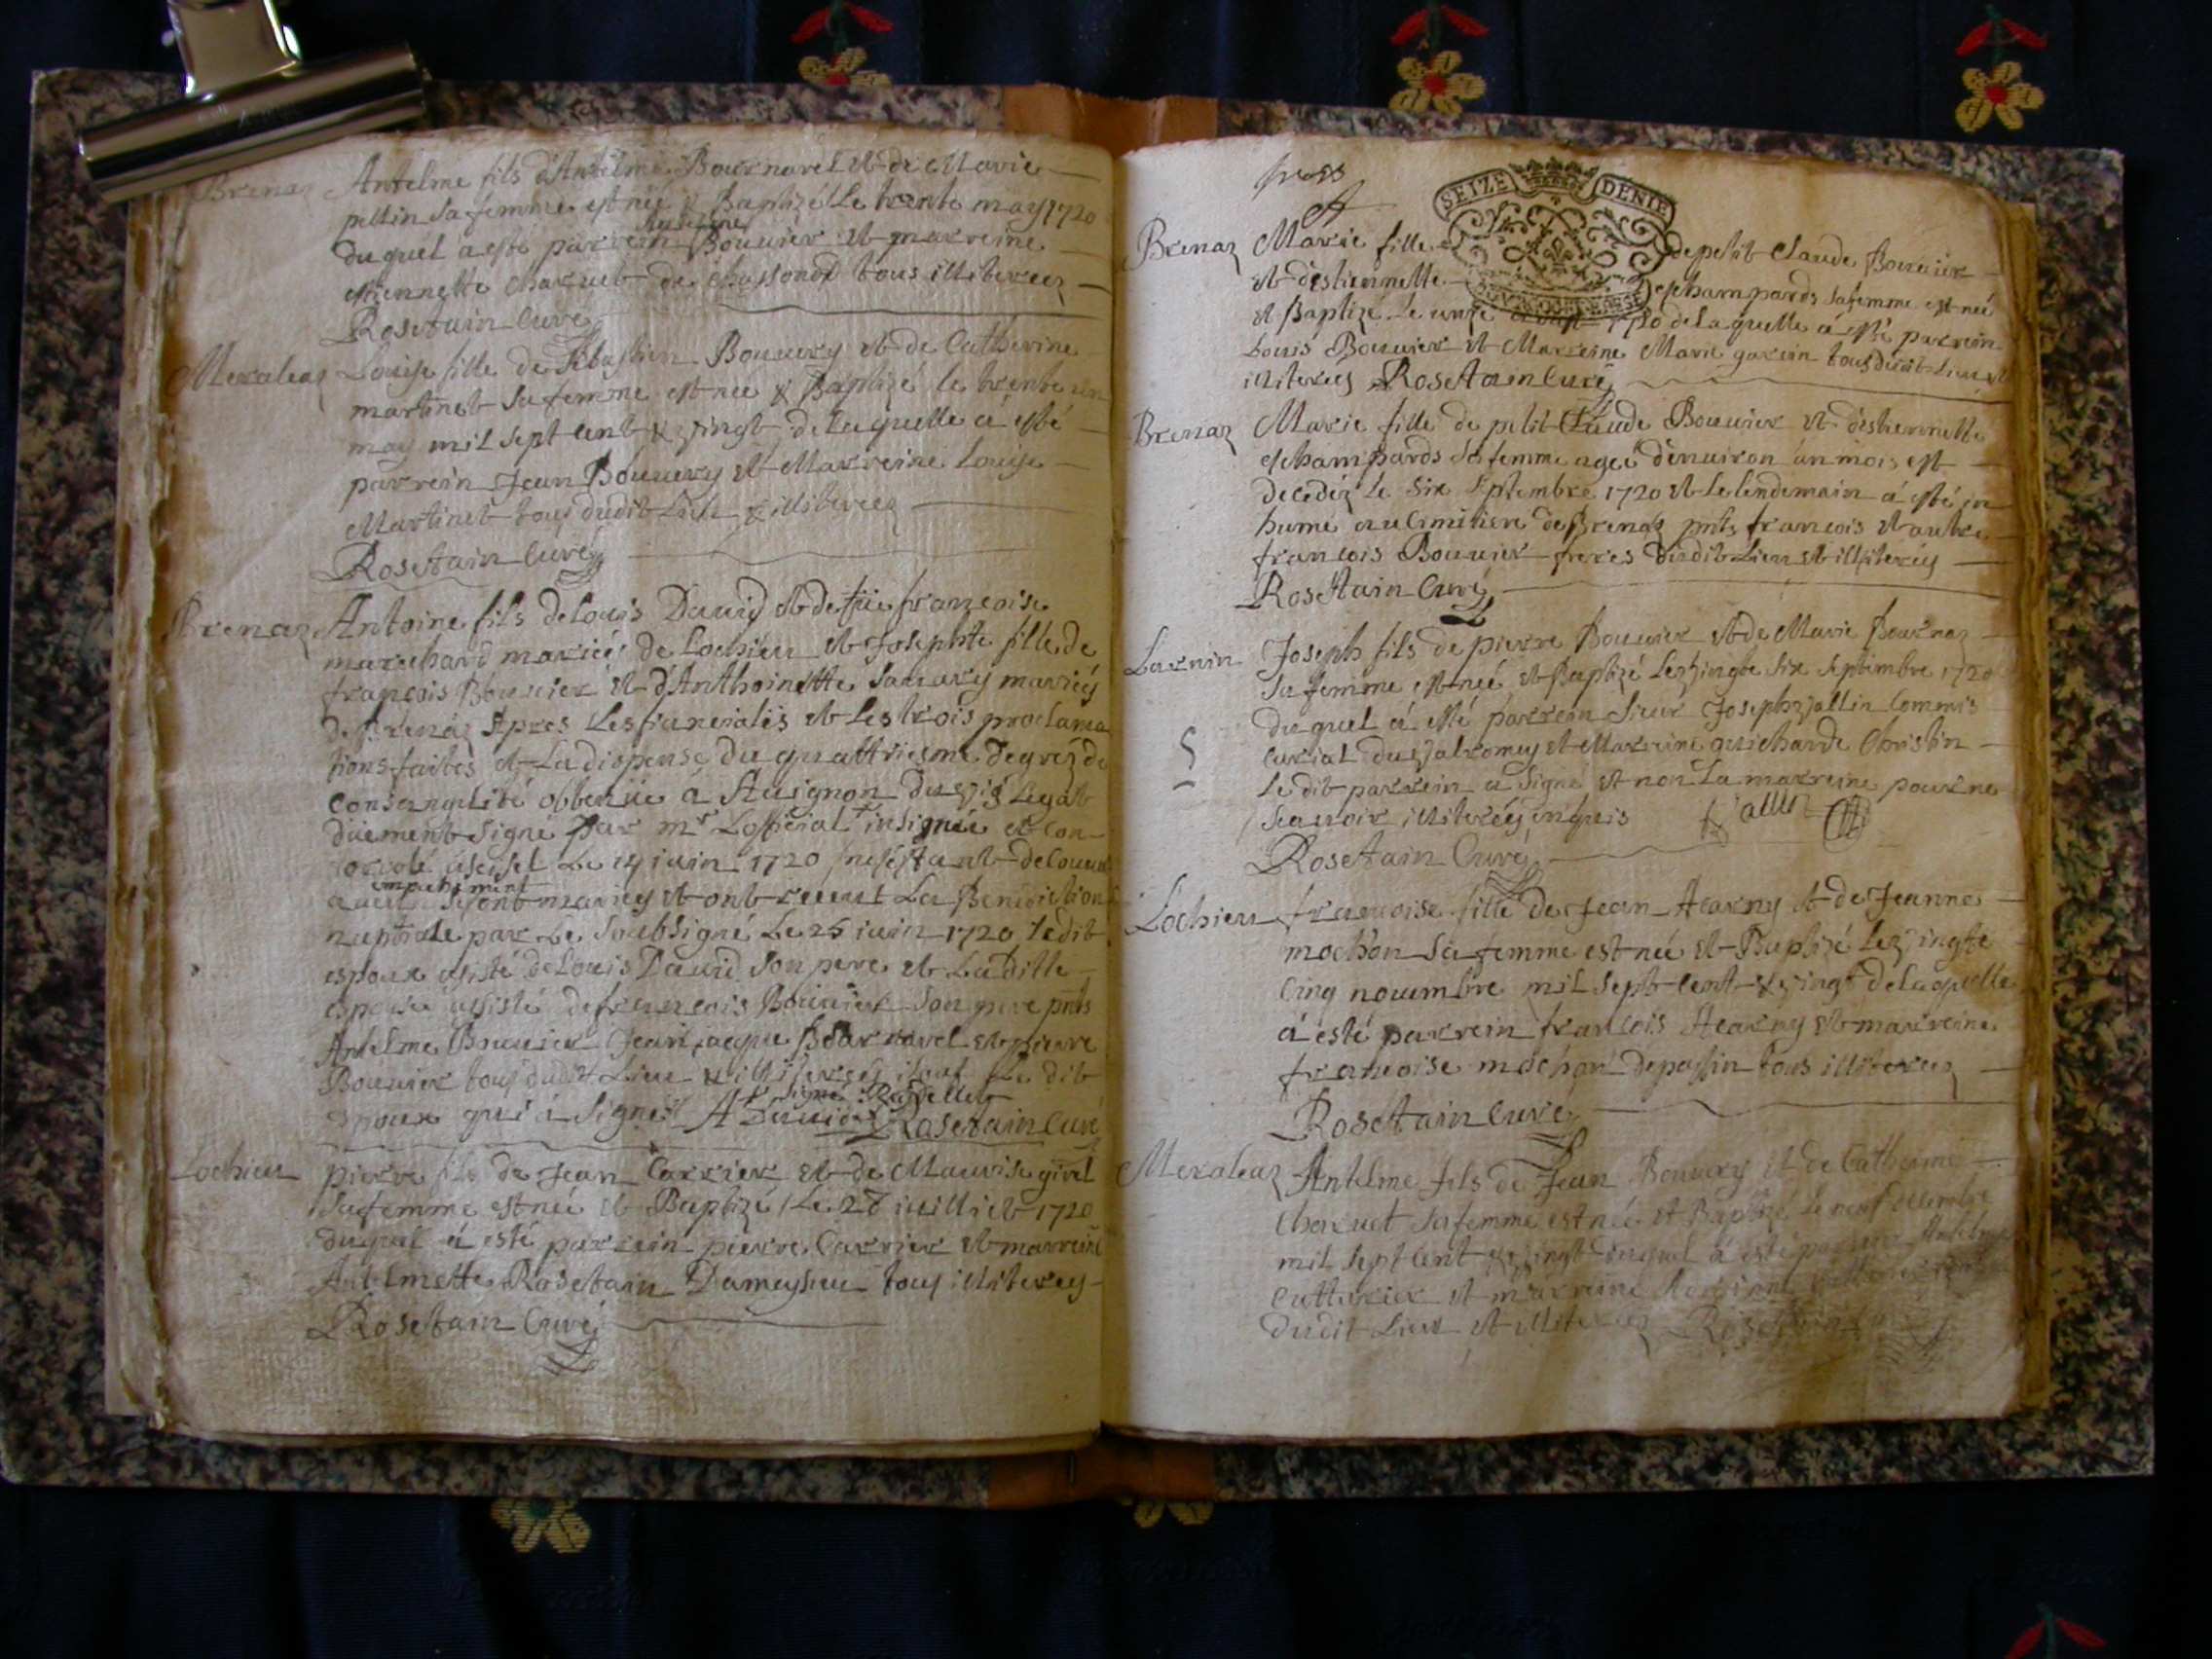 Brenaz Antelme fils d'Antelme Bournavel et de Marie
pellin sa femme est née & Baptizé Le trente may 1720
Antelme
duquel a esté parrein Bouuier et marreine
estiennette Charuet de chassond tous illiterez
Rosetain Curé
Meraleaz Louise fille de Sebastien Bouuery et de Catherine
martinet sa femme est née & Baptizé le trente un
may mil sept cent & vingt de laquelle a esté
parrein Jean Bouuery et Marreine Louise
Martinet tous dudit Lieu & illiterez
Rosetain Curé
Brenaz Antoine fils de Louis Dauid et de françoise
marechand mariés de Lochieu et Josephte fille de
françois Bouuier et d'Anthoinette Sauary mariés
de Brenaz Apres Les fiancialis et Les trois proclama
tions faites et La dispense du quattriesme degrez de
Consangulité obtenüe á Auignon du vis Legat
düement signé par mr Lofficial insignüe et con-
Le 19 iuin 1720 ne sestant decouuert
empechement
aucun se sont mariés et ont receut La Benediction
nuptiale par Le Soubsigné Le 25 iuin 1720 Ledit
espoux asisté de Louis Dauid son pere et Laditte
espouse assisté de francois Bouuier son pere pnts
Antelme Bouuier Jean jacque Bournavel et pierre
Bouuier tous dudit Lieu & illiterés sauf Le dit
espoux qui a signé A Dauid Rosetain Curé
Lochieu pierre fils de Jean Carrier et de Maurise givel
sa femme est née et Baptizé Le 28 iuilliet 1720
duquel á esté parrein pierre Carrier et marreine
Antelmette Rosetain Dameysieu tous illiterez
Rosetain Curé
SEIZE DENIE
Brenaz Marie fille de petit Claude Bouuier
et d'estiennette eschampards sa femme est née
et Baptizé Le unze aoust 1720 de Laquelle á esté parrein
Louis Bouuier et Marreine Marie garin tous dudit Lieu et
illiterés Rosetain Curé
Brenaz Marie fille de petit Claude Bouuier et d'estiennette
eschampards sa femme ageé d'enuiron un mois est
decedéz Le six septembre 1720 et Le lendemain á esté in
humé au cimitiere de Brenaz pnts francois et autre
francois Bouuier freres dudit Lieu et illiterés
Rosetain Curé
Larnin Joseph fils de pierre Bouuier et de Marie Bournaz
sa femme est née et Baptizé Le vingte six septembre 1720
duquel á esté parrein sieur Joseph vallin Commis
curial du valromey et Marreine guicharde Christin
Le dit parrein a signé et non La marreine pour ne
scauoir illiterés enquis vallin
Rosetain Curé
Lochieu francoise fille de Jean Acarny et de Jeanne
mochon sa femme est née et Baptizé Le vingtte
cinq nouembre mil sept cent & vingt de laquelle
á esté parrein francois Acarny et marreine
francoise mochon de passin tous illiterez
Rosetain Curé
Meraleaz Antelme fils de Jean Bouuery et de Catherine
Charuet sa femme est née et Baptizé Le neuf decembre
mil sept cent & vingt duquel á esté parrein Antelme
Cuttivier et marreine
dudit Lieu et illiterez Rosetain Curé